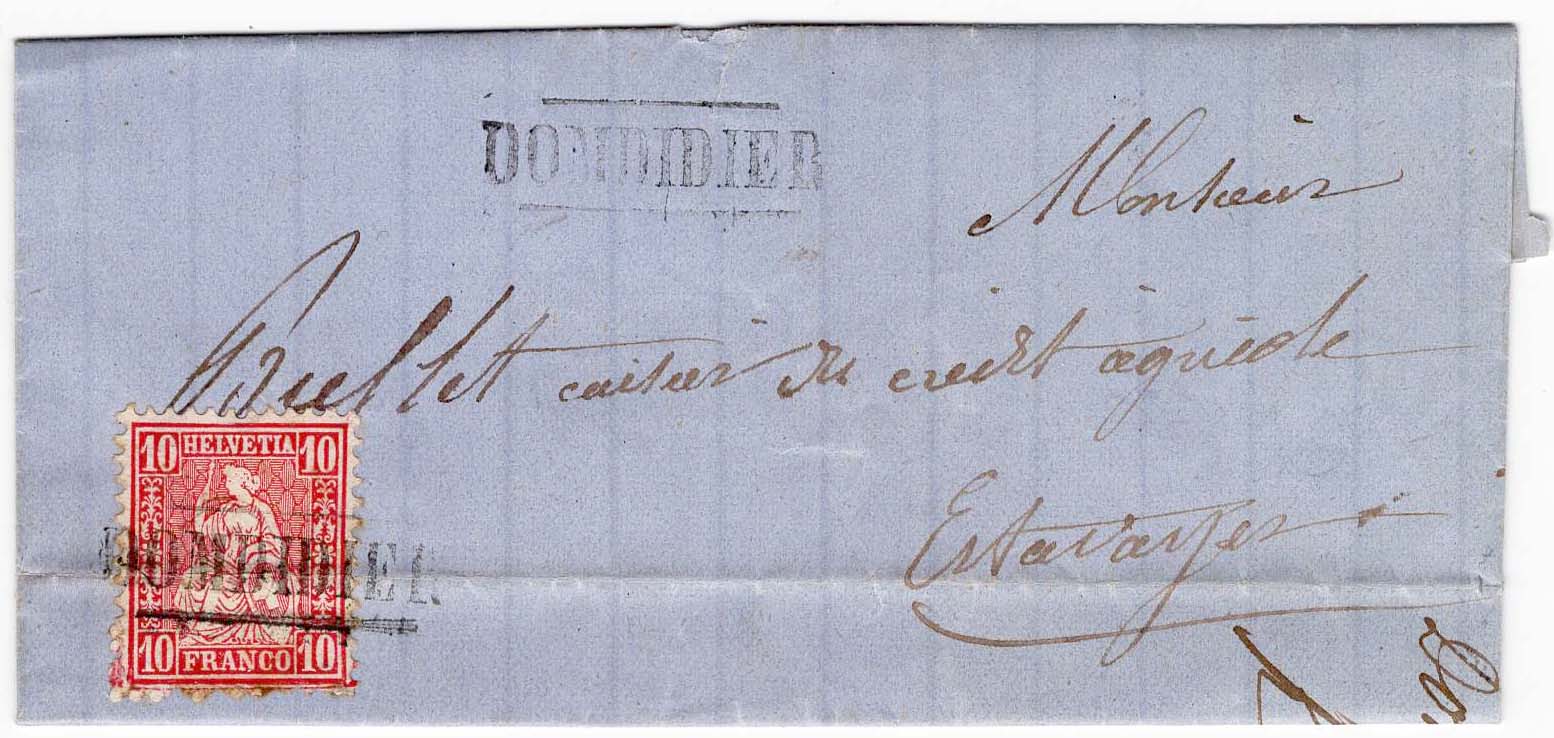 DOMDIDIER
Monsieur
caissier du credit agricole
Estavayer
10 HELVETIA 10
DOMDIDIER
10 FRANCO 10